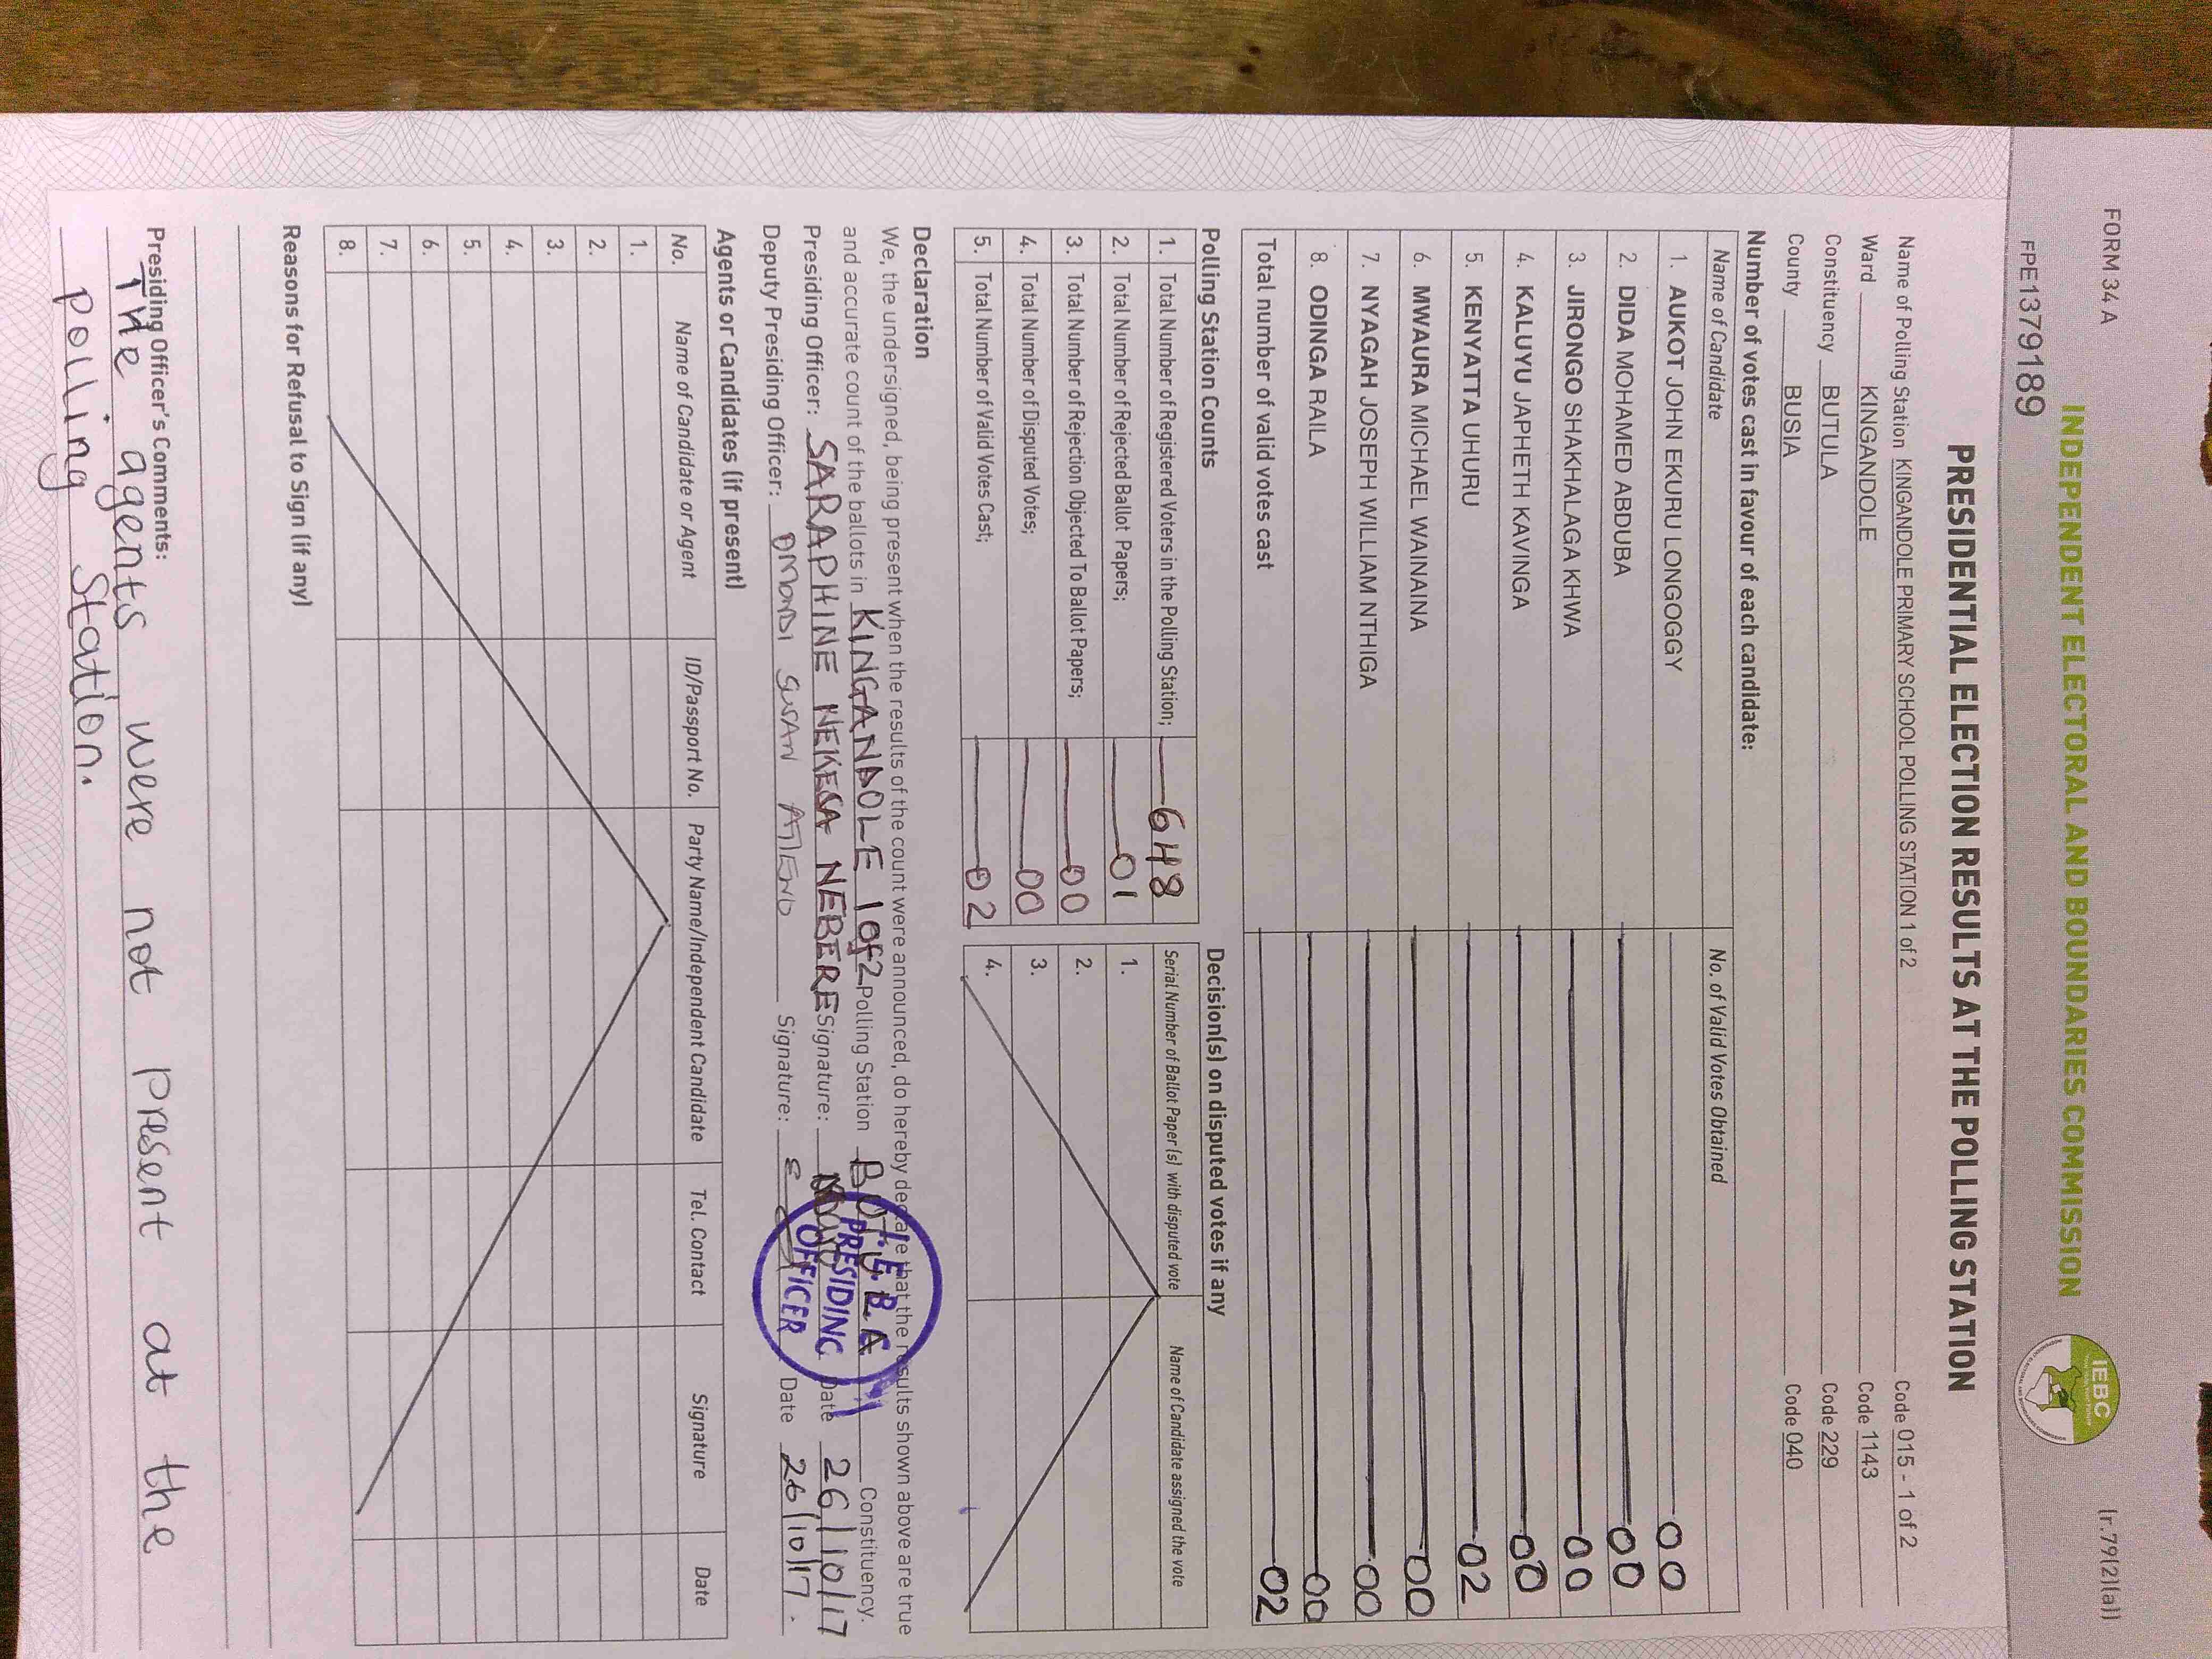 FORM 34 A
(r.79(2)(a))
INDEPENDENT ELECTORAL AND BOUNDARIES COMMISSION
IEBC
FPE1379189
PRESIDENTIAL ELECTION RESULTS AT THE POLLING STATION
Name of Polling Station KINGANDOLE PRIMARY SCHOOL POLLING STATION 1 of 2 Code 015 - 1 of 2
Ward KINGANDOLE Code 1143
Constituency BUTULA Code 229
County BUSIA Code 040
Number of votes cast in favour of each candidate:
Name of Candidate No. of Valid Votes Obtained
1. AUKOT JOHN EKURU LONGOGGY 00
2. DIDA MOHAMED ABDUBA 00
3. JIRONGO SHAKHALAGA KHWA 00
4. KALUYU JAPHETH KAVINGA 00
5. KENYATTA UHURU 02
6. MWAURA MICHAEL WAINAINA 00
7. NYAGAH JOSEPH WILLIAM NTHIGA 00
8. ODINGA RAILA 00
Total number of valid votes cast 02
Polling Station Counts Decision(s) on disputed votes if any
1. Total Number of Registered Voters in the Polling Station; 648
2. Total Number of Rejected Ballot Papers; 01
3. Total Number of Rejection Objected To Ballot Papers; 00
4. Total Number of Disputed Votes; 00
5. Total Number of Valid Votes Cast; 02
Serial Number of Ballot Paper (s) with disputed vote Name of Candidate assigned the vote
1.
2.
3.
4.
Declaration
We, the undersigned, being present when the results of the count were announced, do hereby declare that the results shown above are true
and accurate count of the ballots in KINGANDOLE 1 of 2 Polling Station BUTULA Constituency.
Presiding Officer: SARAPHINE NEKESA NEBERE Signature: Date 26/10/17
Deputy Presiding Officer: OMONDI SUSAN ATIENO Signature: Date 26/10/17.
I.E.B.C
PRESIDING
OFFICER
Agents or Candidates (if present)
No. Name of Candidate or Agent ID/Passport No. Party Name/Independent Candidate Tel. Contact Signature Date
1.
2.
3.
4.
5.
6.
7.
8.
Reasons for Refusal to Sign (if any)
Presiding Officer's Comments:
The agents were not present at the
polling station.